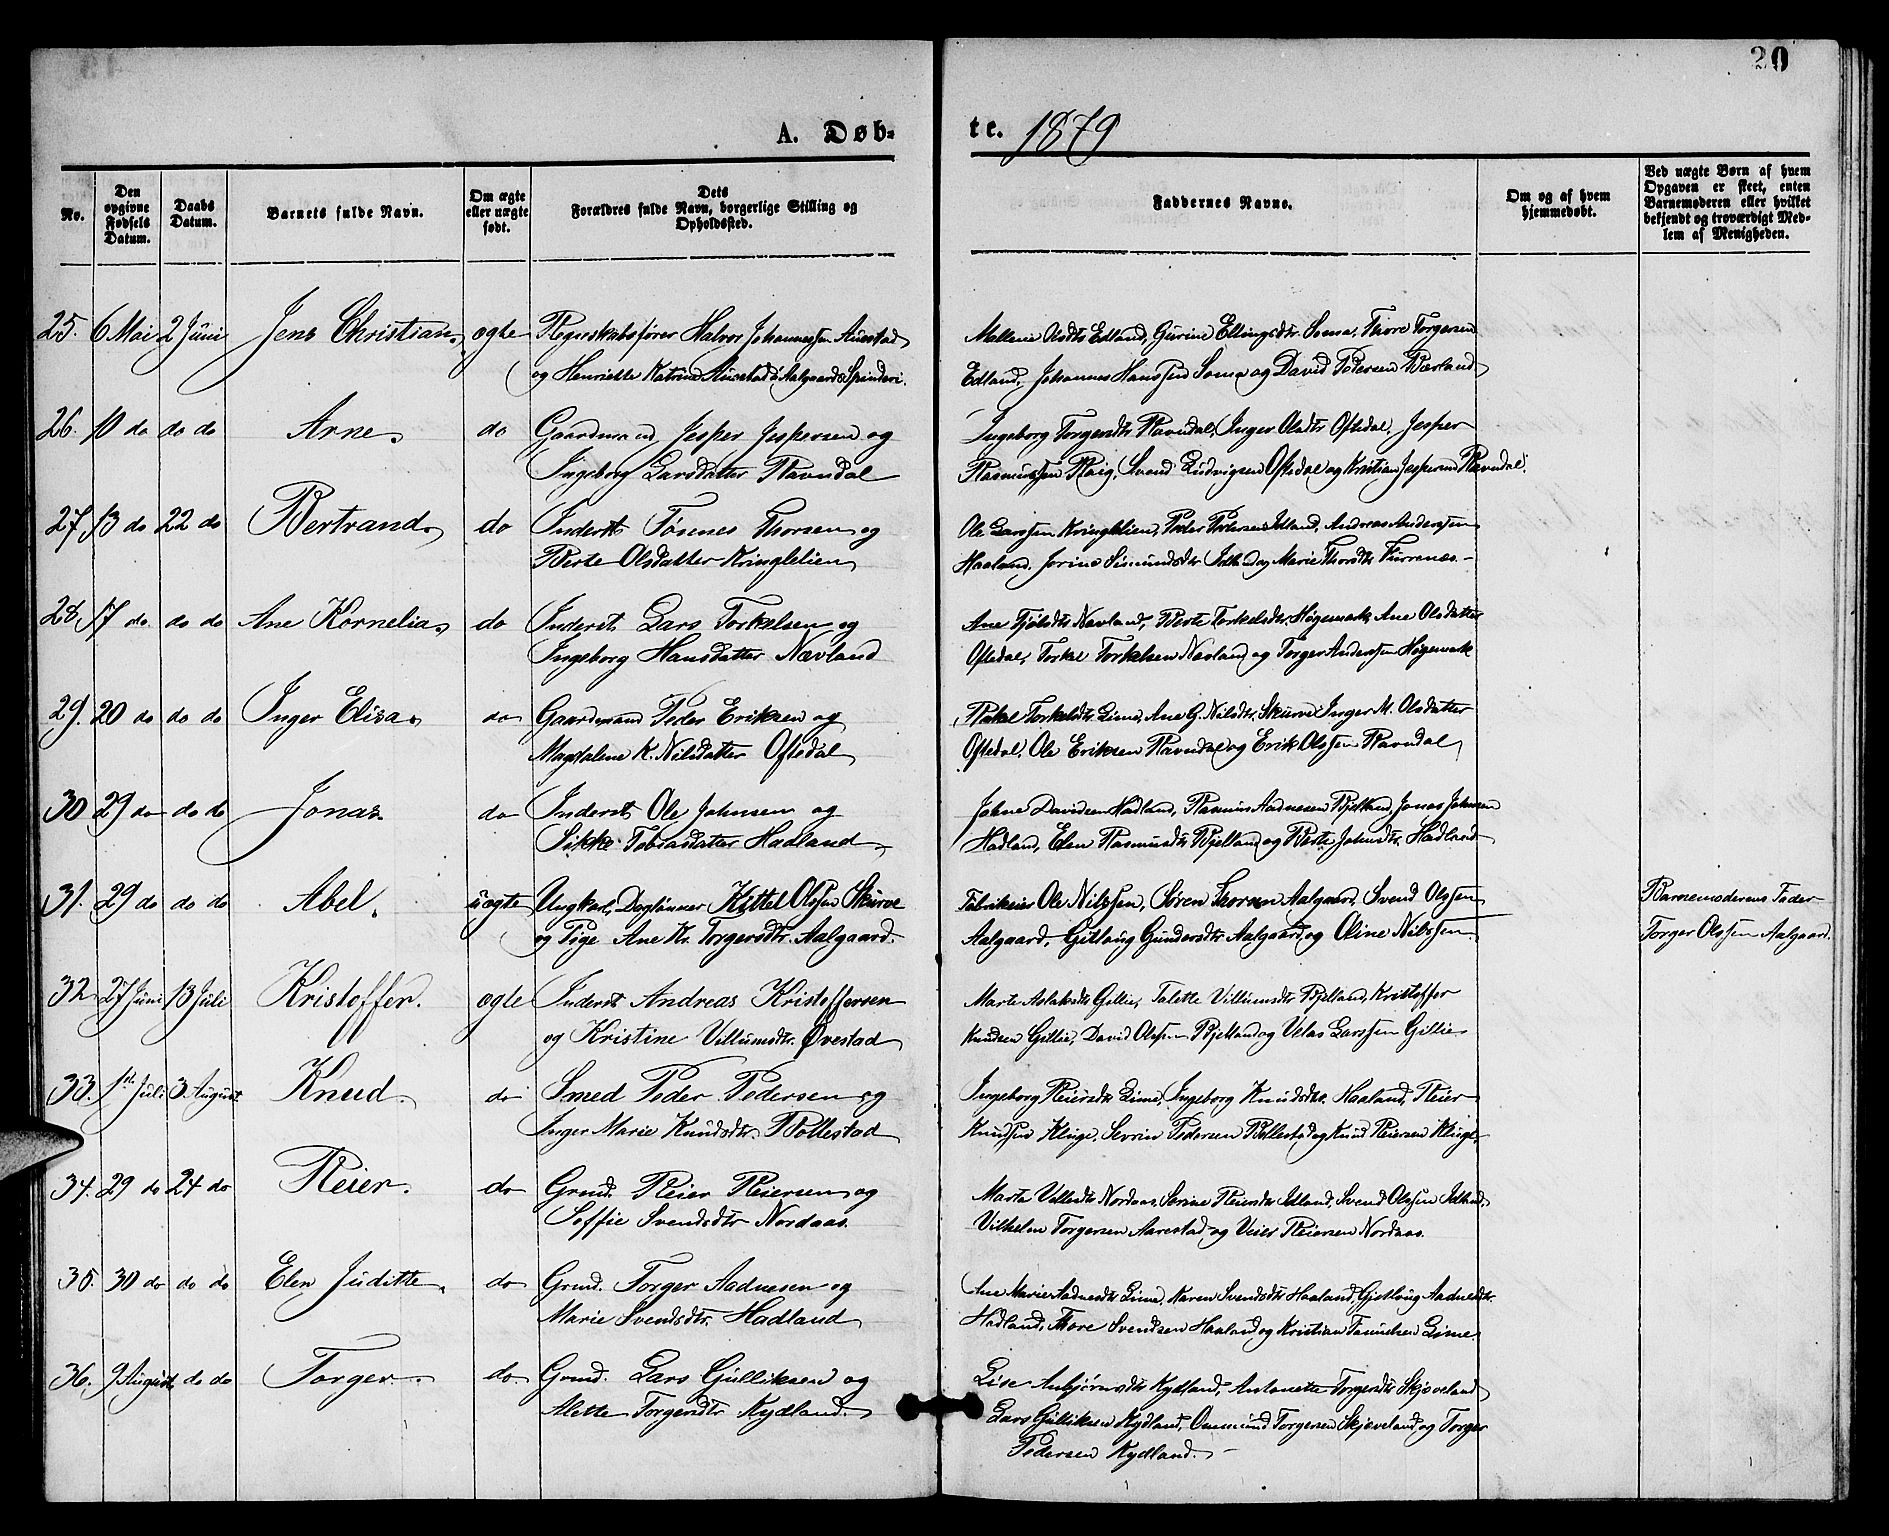 20
A. Døb-
te. 1879
No.
Den opgivne Fødsels Datum.
Daabs Datum.
Barnets fulde Navn.
Om ægte eller uægte født.
Dets Forældres fulde Navn, borgerlige Stilling og Opholdssted.
Faddernes Navne.
Om og af hvem hjemmedøbt.
Ved uægte Børn af hvem Opgaven er skeet, enten Barnemoderen eller hvilket bekjendt og troværdigt Medlem af Menigheden.
25. 6 Mai 2 Juni Jens Christian. ægte Regnskabsfører Halvor Johannessen Auestad
og Henriette Katrine Auestad Aalgaards Spinderi.
Mallene Olsdtr Edland, Gurine Ellingsdtr. Soma, Thore Torgersen
Edland, Johannes Hanssen Soma og David Pedersen Bærland
26. 10 do do do Arne. do Gaardmand Jesper Jespersen og
Ingeborg Larsdatter Ravndal
Ingeborg Torgersdtr Ravndal, Inger Olsdtr Oftedal, Jesper
Rasmussen Røig, Svend Ludvigsen Oftedal og Kristian Jespersen Ravndal.
27. 13 do 22 do Bertrand. do Inderst Tønnes Thorsen og
Berte Olsdatter Kringlelien
Ole Larssen Kringlelien, Peder Pedersen Idland, Andreas Anderssen
Haaland, Jorine Simundsdtr Idland og Marie Thorsdtr Furrenæs.
28. 17 do do do Ane Kornelia. do Inderst Lars Torkelsen og
Ingeborg Hansdatter Nævland
Ane Tjølsdtr Nævland, Berte Torkelsdtr. Høgemark, Ane Olsdatter
Oftedal, Torkel Torkelsen Nævland og Torger Anderssen Høgemark
29. 20 do do do Inger Elisa. do Gaardmand Peder Eriksen og
Magdalene K. Nilsdatter Oftedal
Rakel Torkelsdtr. Lima, Ane G. Nilsdtr. Skurve, Inger M. Olsdatter
Oftedal, Ole Eriksen Ravndal og Erik Olssen Ravndal
30 29 do do do Jonas. do Inderst Ole Johnsen og
Sikke Tobiasdatter Hadland
Johne Davidsen Hadland, Rasmus Aadnesen Bjelland, Jonas Johnsen
Hadland, Elen Rasmusdtr Bjelland og Berte Johnsdtr. Hadland
31. 29 do do do Abel. uægte Ungkarl, Daglønner Kittel Olssen Skurve
og Pige Ane Kr. Torgersdtr. Aalgaard.
Fabrikeier Ole Nilssen, Søren Thorsen Aalgaard, Svend Olssen
Aalgaard, Gitlaug Gundersdtr. Aalgaard og Oline Nilssen.
Barnemoderens Fader
Torger Olssen Aalgaard.
32 27 Juni 13 Juli Kristoffer. ægte Inderst Andreas Kristoffersen
og Kristine Villumsdtr. Øvestad
Marte Aslaksdtr Gillie, Talette Villumsdtr. Bjelland, Kristoffer
Knudsen Gillie, David Olssen Bjelland og Velas Larssen Gillie
33. 1st Juli 3 August Knud. do Smed Peder Pedersen og
Inger Marie Knudsdtr. Bollestad
Ingeborg Reiersdtr Lima, Ingeborg Knudsdtr. Haaland, Reier
Knudsen Kluge, Sevrin Pedersen Bollestad og Knud Reiersen Kluge
34. 29 do 24 do Reier. do Grmd. Reier Reiersen og
Soffie Svendsdtr Nordaas.
Marta Vellesdtr Nordaas, Serine Reiersdtr Idland, Svend Olssen Idland,
Vilhelm Torgersen Aarestad og Veier Reiersen Nordaas.
35. 30 do do do Elen Juditte. do Grmd. Torger Aadnesen og
Marie Svendsdtr. Hadland
Ane Marie Aadnesdtr Lima, Karen Svendsdtr Haaland, Gjitlaug Aadnesdtr.
Hadland, Thore Svendsen Haaland og Kristian Tønnesen Lima
36. 9 August do do Torger. do Grmd. Lars Gulliksen og
Alette Torgersdtr Kydland.
Lise Asbjørnsdtr Kydland, Antonette Torgersdtr Skjæveland
Lars Gulliksen Kydland, Ommund Torgersen Skjæveland og Torger
Pedersen Kydland.